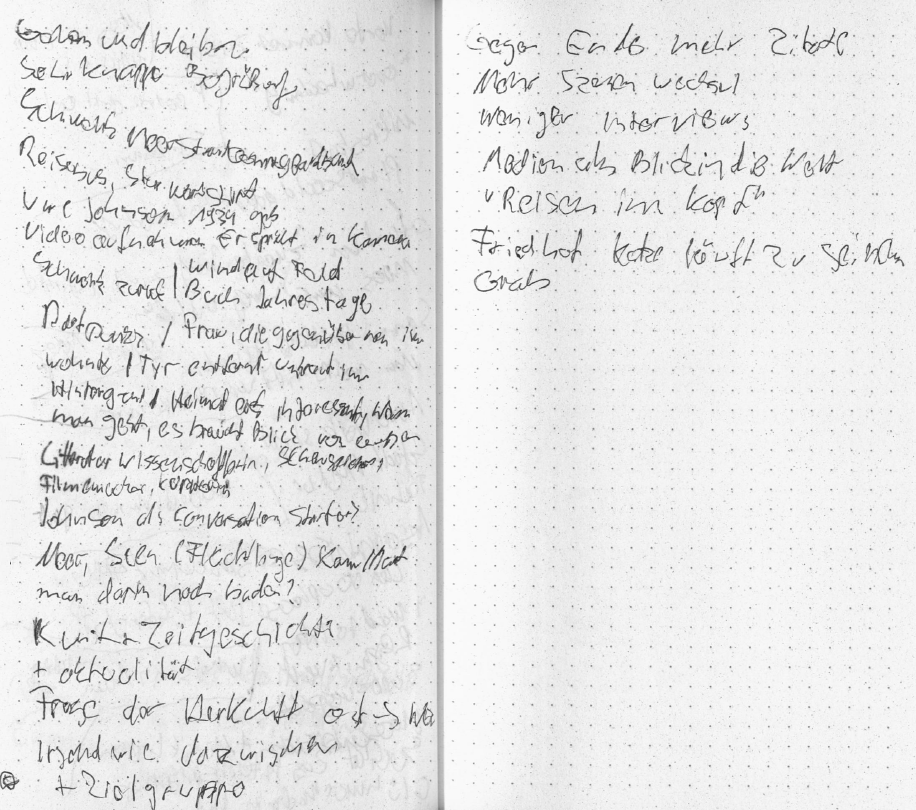 Gehen und bleiben
Sehr knappe Begrüßung
Schwarz Meer
Reisebus,
Uwe Johnson 1934 geb
Videoaufnahmen Er spricht in Kamera
Schwarz zurück / Wind auf Feld
Buch Jahrestage
/ Frau, die gegenüber von ihm
wohnte / Tür entfernt
Hintergrund / Heimat erst interessant, wenn
man geht, es braucht Blick von außen
Litteratur wissenschaftlerin, Schauspieler,
Filmemacher,
Johnson als conversation starter?
Meer, Seen (Flüchtlinge) Kann
man darin noch baden?
Kunst + Zeitgeschichte
+ aktualität
Frage der Herkunft ost ->
Irgendwie dazwischen
+ Zielgruppe
Gegen Ende mehr Zitate
Mehr Szenen wechsel
weniger Interviews
Medien als Blick in die Welt
"Reisen im Kopf"
Friedhof Katze läuft zu
Grab